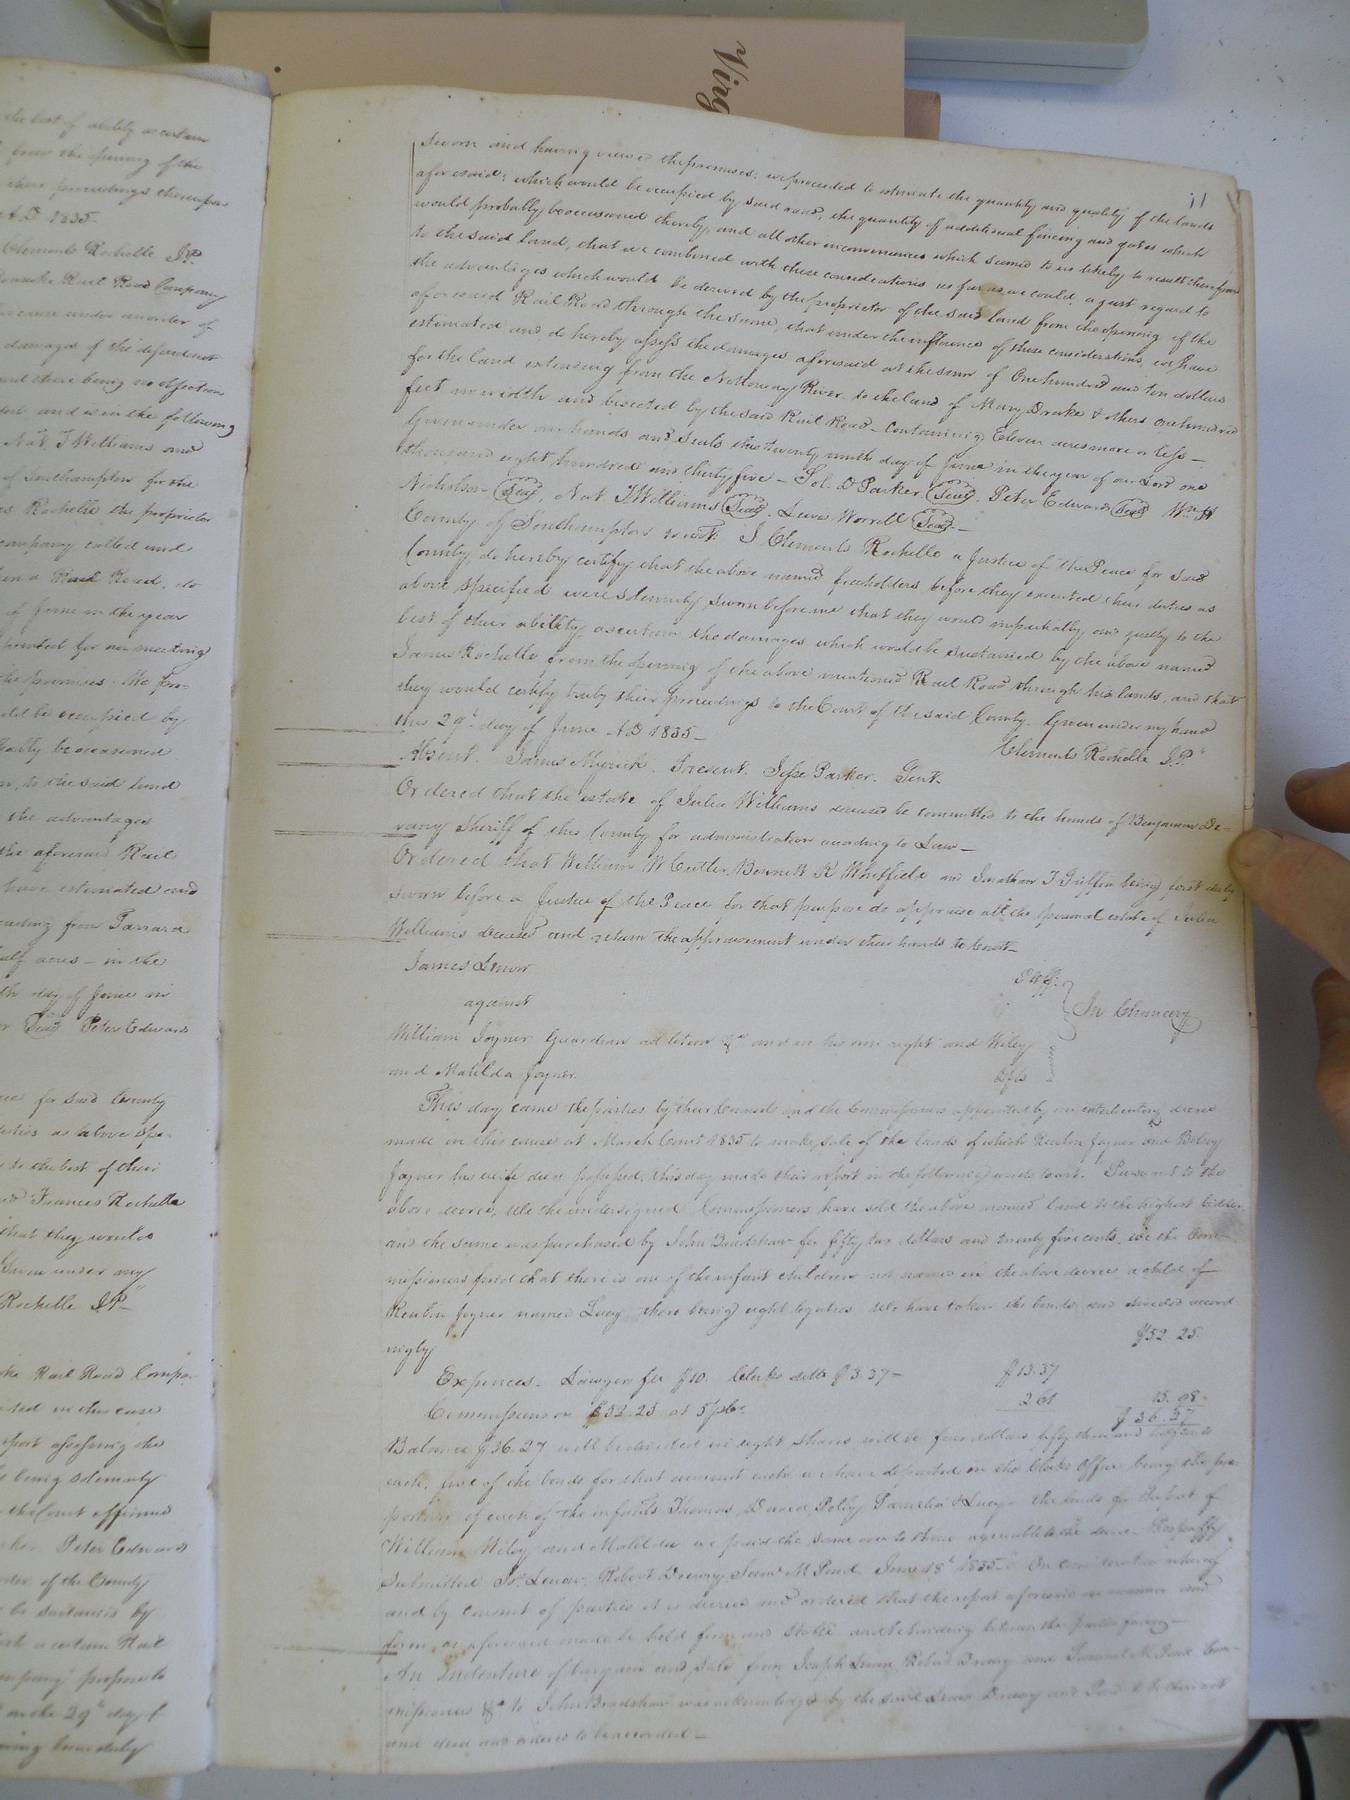 Virg
the best of ability ascertain
from the opening of the
their proceedings thereupon
A.D. 1835.
Clements Rochelle J.P.
Roanoke Rail Road Company
cause under an order of
damages of the defendant
and there being no objection
and is in the following
Nat T Williams and
of Southampton for the
Rochelle the proprietor
company called and
a Rail Road, do
of June in the year
pointed for our meeting
the premises. We pro-
would be occupied by
probably be occasioned
to the said land
the advantages
the aforesaid Rail
have estimated and
half acres - in the
th day of June in
Seal Peter Edwards
for said County
duties as above spe-
to the best of their
Frances Rochelle
that they would
Given under my
Rochelle J.P.
Rail Road Compa-
in this case
report assessing the
being solemnly
the Court affirmed
Peter Edwards
order of the County
be sustained by
a certain Rail
company propose to
on the 29th day of
11
sworn and having viewed the premises; we proceeded to estimate the quantity and quality of the lands
aforesaid; which would be occupied by said road, the quantity of additional fencing and gates which
would probably be occasioned thereby, and all other inconveniences which seemed to us likely to result therefrom
to the said land, that we combined with these considerations as far as we could, a just regard to
the advantages which would be derived by the proprietor of the said land from the opening of the
aforesaid Rail Road through the same, that under the influence of these considerations, we have
estimated and do hereby assess the damages aforesaid at the sum of One hundred and ten dollars
for the land extending from the Nottoway River to the land of Mary Drake & others One hundred
feet in width and bisected by the said Rail Road - Containing Eleven acres more or less -
Given under our hands and Seals this twenty ninth day of June in the year of our Lord one
thousand eight hundred and thirty five - Sol: D Parker Seal. Peter Edwards Seal Wm H
Nicholson Seal, Nat T Williams Seal. Lewis Worrell Seal -
County of Southampton to wit: I Clements Rochelle a Justice of the Peace for said
County, do hereby certify that the above named freeholders before they executed their duties as
above specified were solemnly sworn before me that they would impartially and justly to the
best of their ability ascertain the damages which would be sustained by the above named
James Rochelle from the opening of the above mentioned Rail Road through his lands, and that
they would certify truly their proceedings to the Court of the said County. Given under my hand
this 29th day of June A.D 1835 -
Clements Rochelle J.P.
Absent. James Myrick. Present. Jesse Parker. Gent.
Ordered that the estate of Julia Williams deceased be committed to the hands of Benjamin De-
vany Sheriff of this County for administration according to Law -
Ordered that William W Cutler, Bennett K Whitfield and Jonathan T Griffin being first duly
sworn before a Justice of the Peace for that purpose do appraise all the personal estate of Julia
Williams deceased and return the appraisement under their hands to Court -
James Lenow
Pltff.
against
In Chancery
William Joyner Guardian ad litem &c and in his own right and Wiley
and Matilda Joyner.
Dfts
This day came the parties by their Counsels and the Commissioners appointed by an interlocutory decree
made in this cause at March Court 1835 to make sale of the lands of which Reuben Joyner and Betsey
Joyner his wife died possessed, this day made their report in the following words to wit. Pursuant to the
above decree, We the undersigned Commissioners have sold the above named land to the highest bidder
and the same was purchased by John Bradshaw for fifty two dollars and twenty five cents. We the Com-
missioners find that there is one of the infant children not named in the above decree a child of
Reuben Joyner named Lucy, there being eight legatees We have taken the bonds and divided accord-
ingly
$52.25
Expences - Lawyers fee $10. Clerks ditto $3.37 -
$13.37
Commissions on $52.25 at 5 pct.
2.61
15.98
$36.27
Balance $36.27 will be divided in eight shares will be four dollars fifty three and
each, five of the bonds for that amount each we have deposited in the Clerks Office being the pro-
portion of each of the infants Thomas, David Polly Pamelia & Lucy - the bonds for the part of
William Wiley and Matilda we paid the same over to them agreeable to the decree. Respectfy
submitted Js. Lenow, Robert Drewry, Saml M Paul June 18th 1835. On consideration whereof
and by consent of parties it is decreed and ordered that the report aforesaid in manner and
form as aforesaid made be held firm and stable and be binding between the parties forever -
An Indenture of bargain and sale from Joseph Lenow Robert Drewry and Samuel M Paul Com-
missioners &c to John Bradshaw was acknowledged by the said Lenow Drewry and Paul to be their act
and deed and ordered to be recorded -